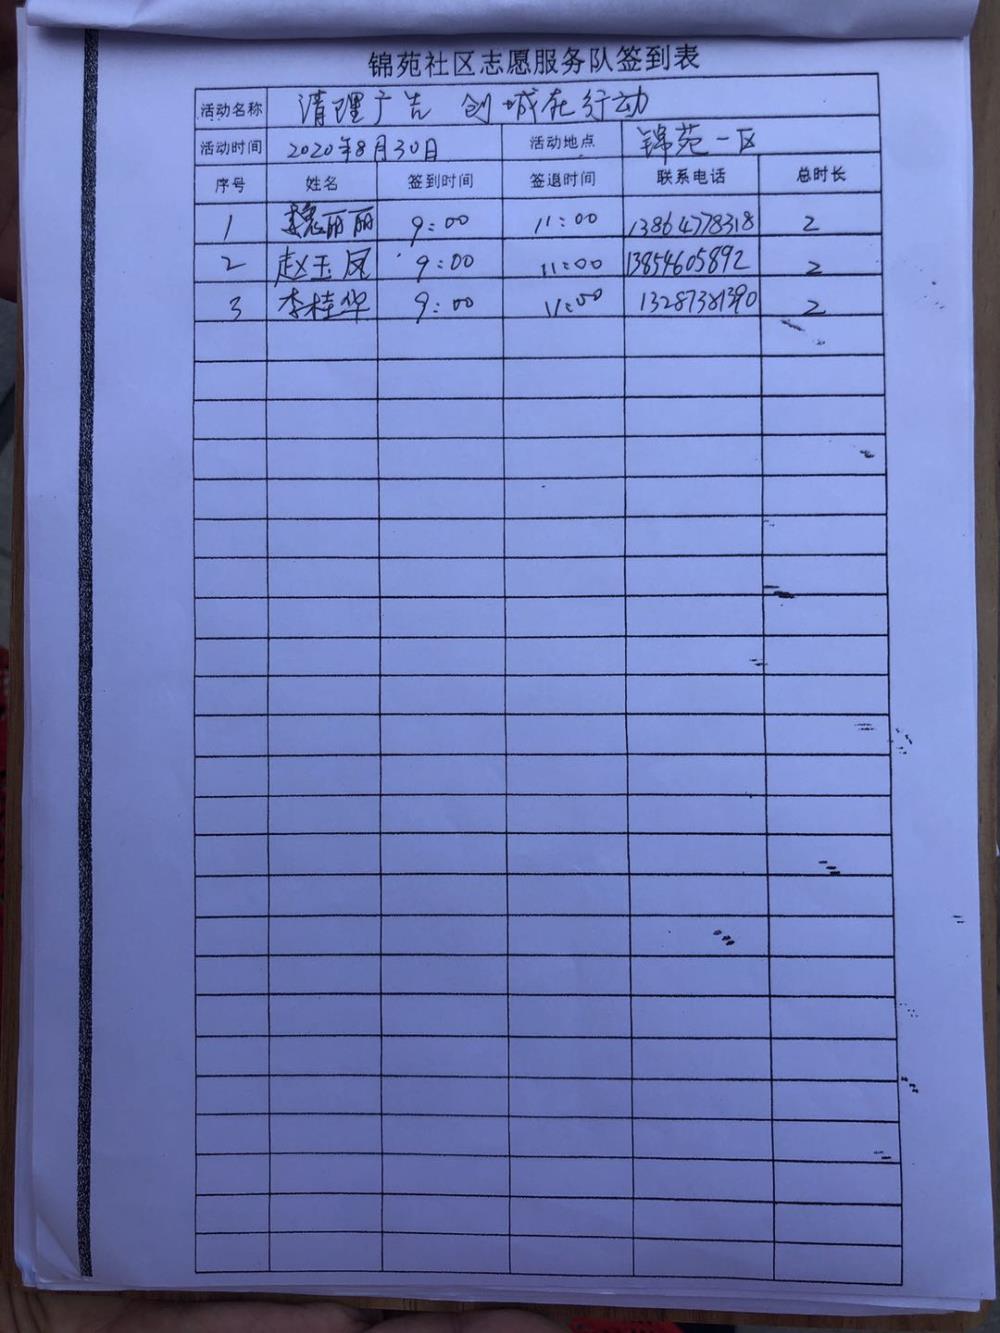 锦苑社区志愿服务队签到表
活动名称 清理广告 创城在行动
活动时间 2020年8月30日 活动地点 锦苑一区
序号 姓名 签到时间 签退时间 联系电话 总时长
1 丽丽 9:00 11:00 13864778318 2
2 赵玉凤 9:00 11:00 13854605892 2
3 李桂华 9:00 11:00 13287381390 2